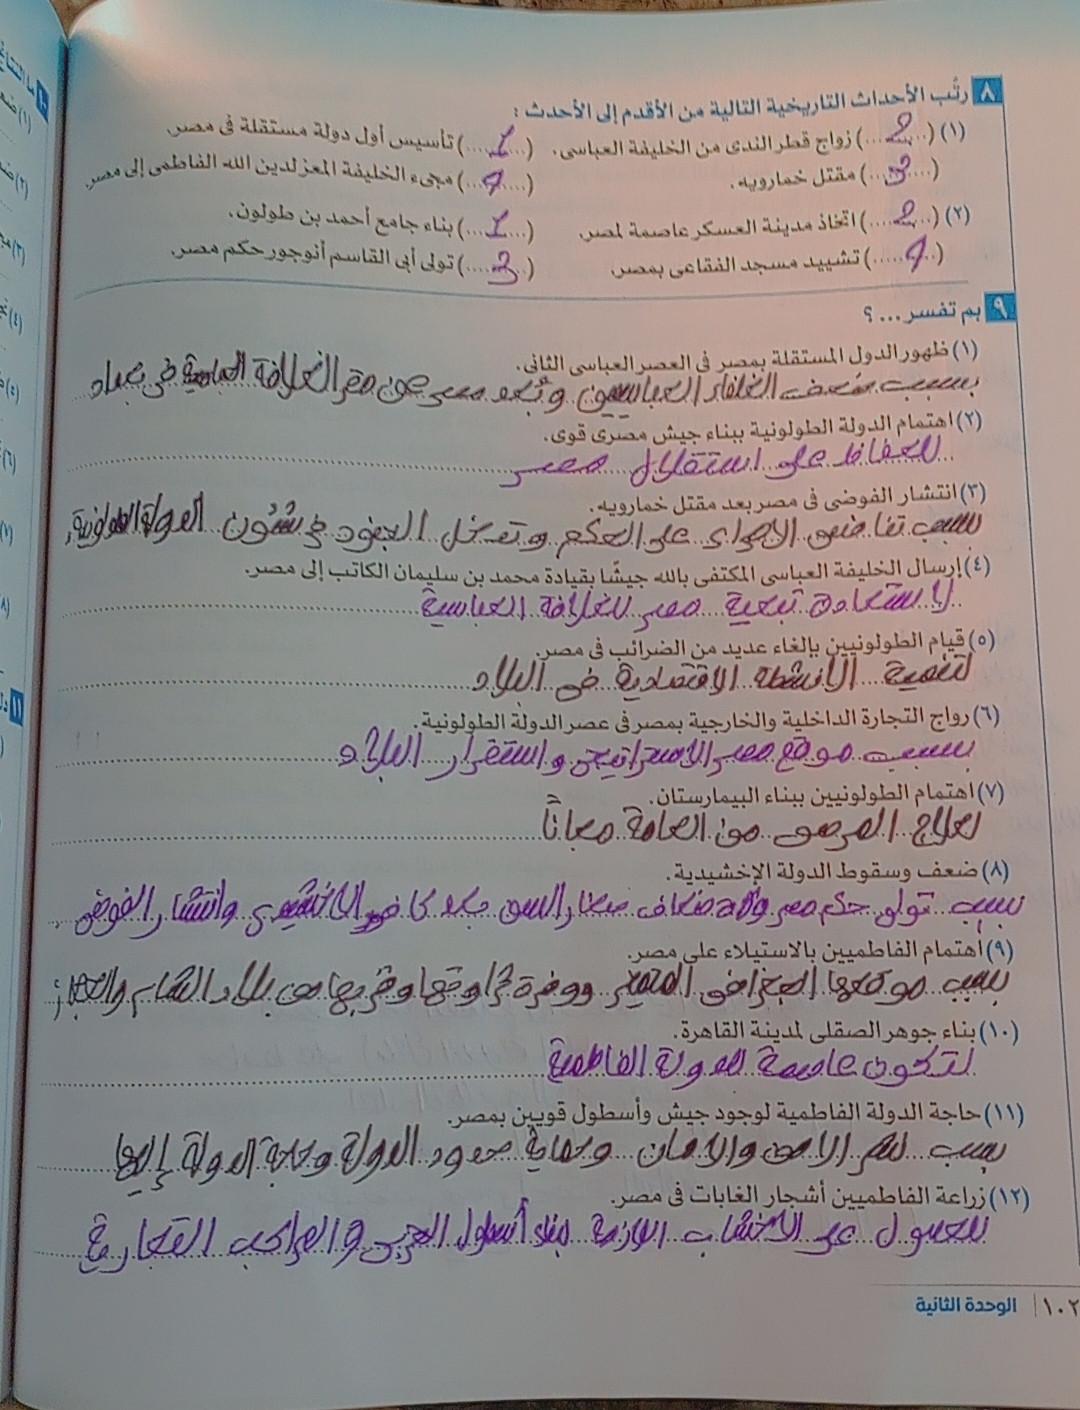 ٨ رتّب الأحداث التاريخية التالية من الأقدم إلى الأحدث :
(١) (...2...) زواج قطر الندى من الخليفة العباسى. (...1...) تأسيس أول دولة مستقلة فى مصر.
(...3...) مقتل خمارويه. (...4...) مجىء الخليفة المعز لدين الله الفاطمى إلى مصر.
(٢) (...2...) اتخاذ مدينة العسكر عاصمة لمصر. (...1...) بناء جامع أحمد بن طولون.
(...4...) تشييد مسجد الفقاعى بمصر. (...3...) تولى أبى القاسم أنوجور حكم مصر.
٩ بم تفسر ... ؟
(١) ظهور الدول المستقلة بمصر فى العصر العباسى الثانى.
بسبب ضعف الخلفاء العباسيين وبُعد مصر عن مقر الخلافة العباسية فى بغداد
(٢) اهتمام الدولة الطولونية ببناء جيش مصرى قوى.
للحفاظ على استقلال مصر
(٣) انتشار الفوضى فى مصر بعد مقتل خمارويه.
بسبب تنافس الامراء على الحكم وتدخل الجنود فى شئون الدولة الطولونية.
(٤) إرسال الخليفة العباسى المكتفى بالله جيشًا بقيادة محمد بن سليمان الكاتب إلى مصر.
لاستعادة تبعية مصر للخلافة العباسية
(٥) قيام الطولونيين بإلغاء عديد من الضرائب فى مصر.
لتنمية الانشطة الاقتصادية فى البلاد
(٦) رواج التجارة الداخلية والخارجية بمصر فى عصر الدولة الطولونية.
بسبب موقع مصر الاستراتيجى واستقرار البلاد
(٧) اهتمام الطولونيين ببناء البيمارستان.
لعلاج المرضى من العامة مجاناً
(٨) ضعف وسقوط الدولة الإخشيدية.
بسبب تولى حكم مصر ضعاف صغار السن بعد كافور الاخشيدى وانتشار الفوضى
(٩) اهتمام الفاطميين بالاستيلاء على مصر.
بسبب موقعها الجغرافى المتميز ووفرة ثرواتها وقربها من بلاد الشام والحجاز
(١٠) بناء جوهر الصقلى لمدينة القاهرة.
لتكون عاصمة للدولة الفاطمية
(١١) حاجة الدولة الفاطمية لوجود جيش وأسطول قويين بمصر.
بسبب نشر الامن والامان وحماية حدود الدولة وحاجة الدولة إليها
(١٢) زراعة الفاطميين أشجار الغابات فى مصر.
للحصول على الاخشاب اللازمة لبناء أسطول الحربى والمراكب التجارية
١٠٢ | الوحدة الثانية